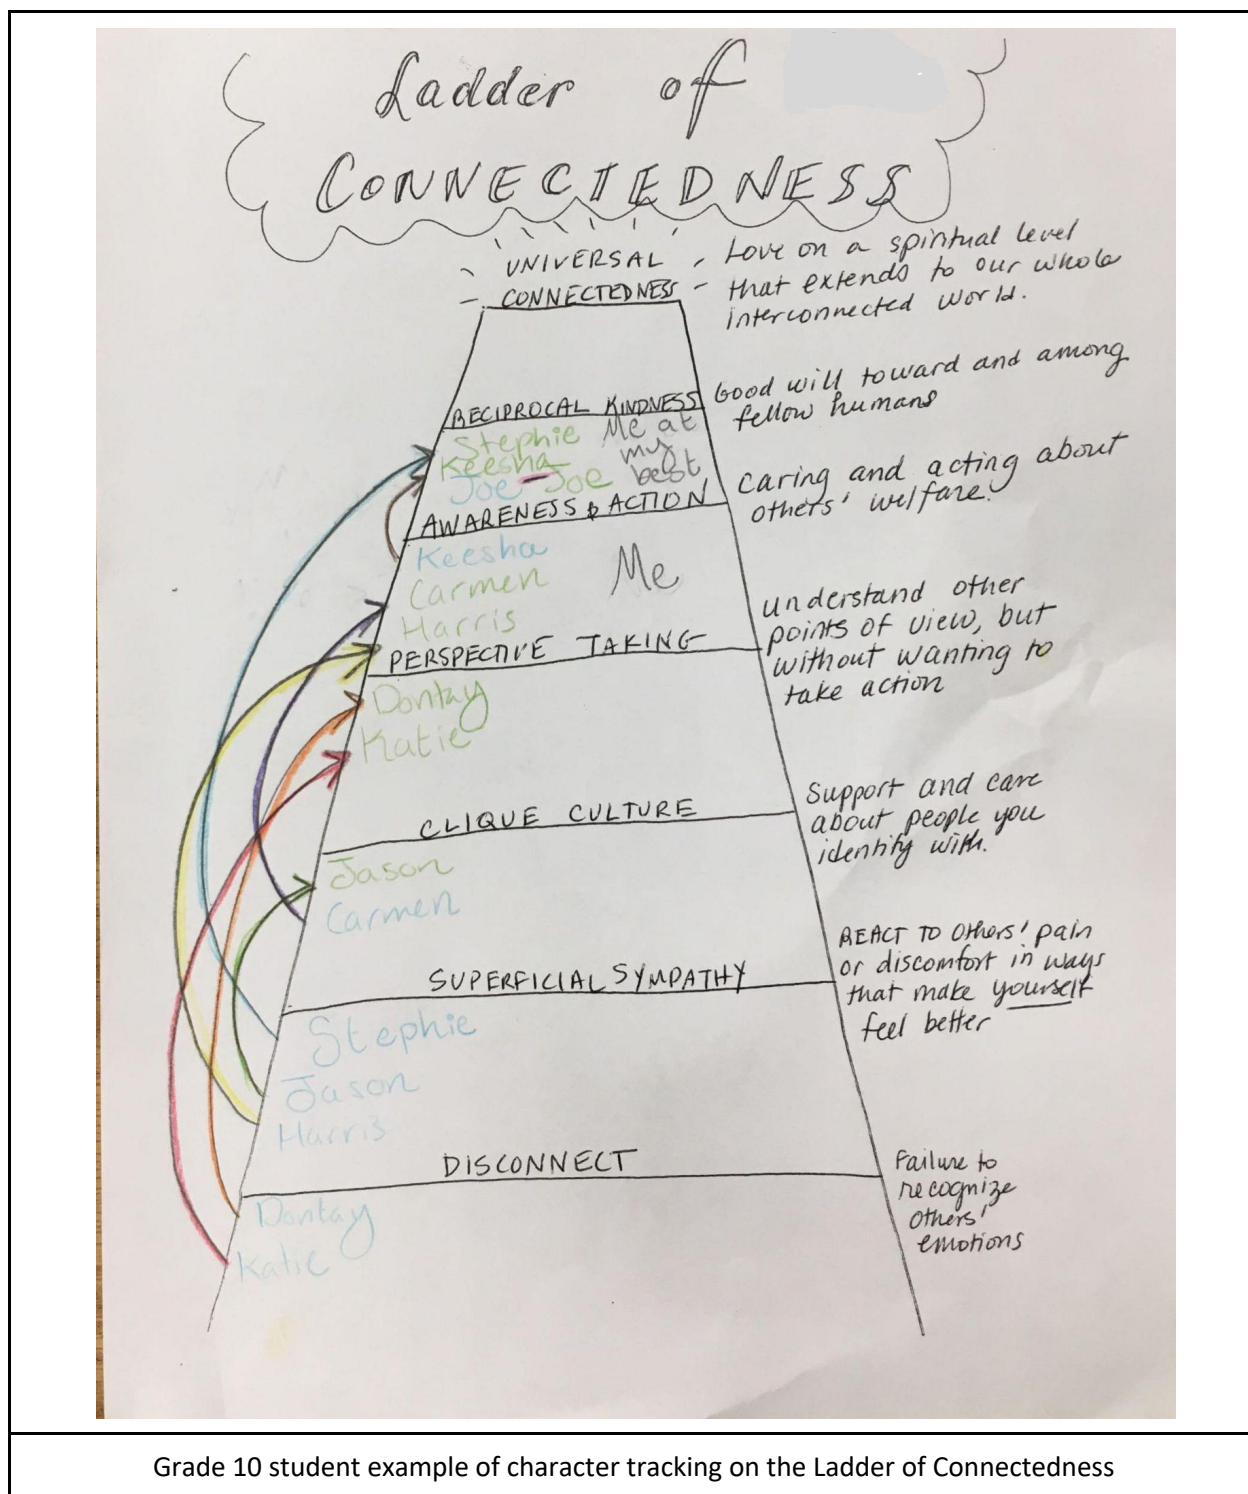 Ladder of
CONNECTEDNESS
UNIVERSAL
CONNECTEDNESS
Love on a spiritual level
that extends to our whole
interconnected world.
RECIPROCAL KINDNESS
Good will toward and among
fellow humans
Stephie Me at
Keesha my
Joe - Joe best
AWARENESS & ACTION
Caring and acting about
others' welfare.
Keesha
Carmen Me
Harris
PERSPECTIVE TAKING
understand other
points of view, but
without wanting to
take action
Dontay
Katie
CLIQUE CULTURE
Support and care
about people you
identify with.
Jason
Carmen
SUPERFICIAL SYMPATHY
REACT TO Others' pain
or discomfort in ways
that make yourself
feel better
Stephie
Jason
Harris
DISCONNECT
Failure to
recognize
others'
emotions
Dontay
Katie
Grade 10 student example of character tracking on the Ladder of Connectedness